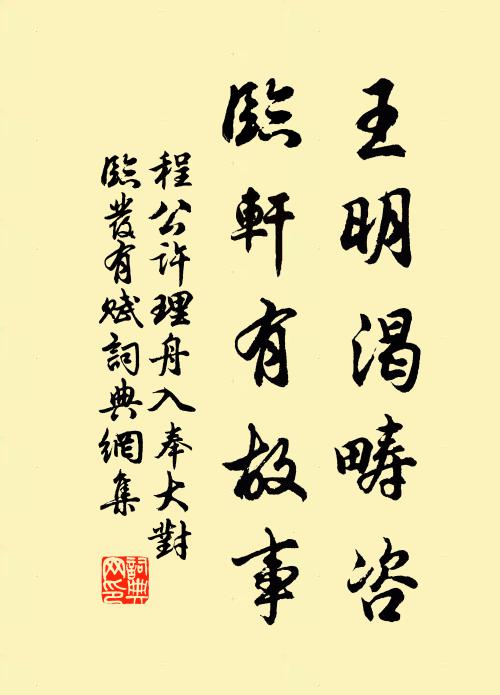 王明渴疇咨
臨軒有故事
程公許理舟入奉大對
臨發有賦詞典網集
詞典網印